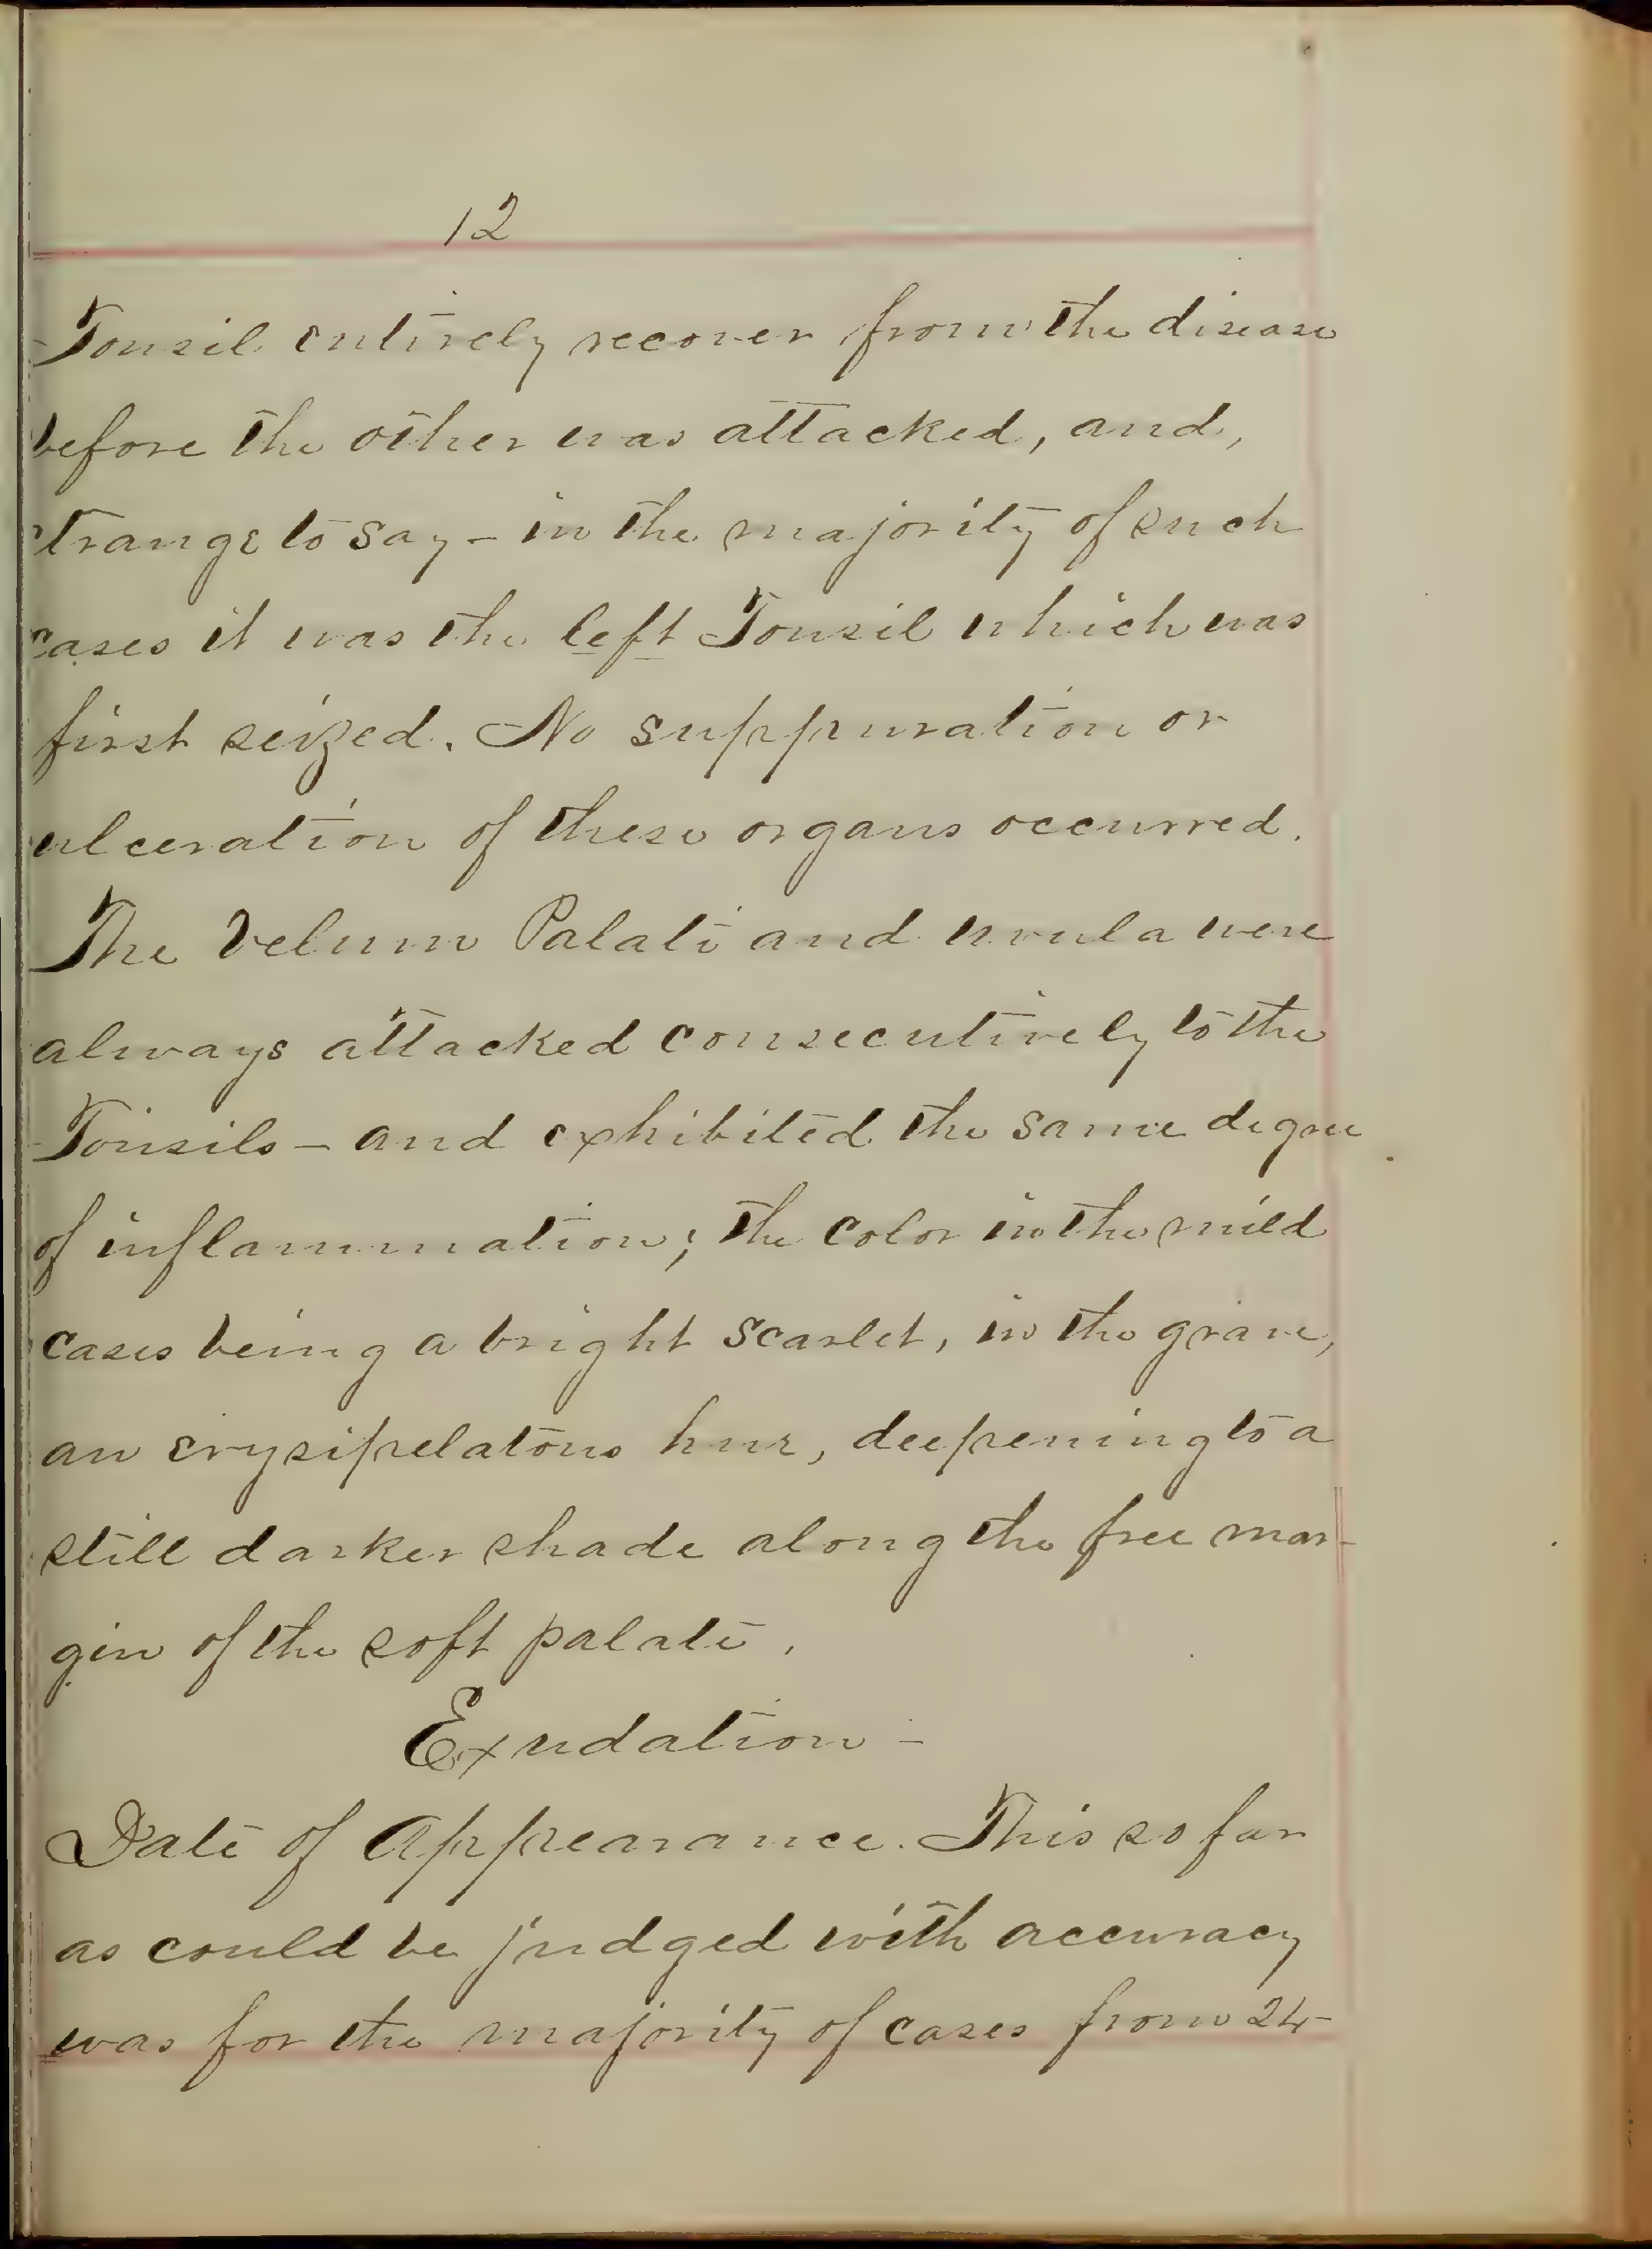 12
Tonsil entirely recover from the disease
before the other was attacked, and,
strange to say - in the majority of such
cases it was the left Tonsil which was
first seized. No suppuration or
ulceration of these organs occurred.
The Velum Palati and uvula were
always attacked consecutively to the
Tonsils - and exhibited the same degree
of inflammation; the color in the mild
cases being a bright scarlet, in the grave,
an erysipelatous hue, deepening to a
still darker shade along the free mar-
gin of the soft palate.
Exudation -
Date of Appearance. This so far
as could be judged with accuracy
was for the majority of cases from 24-